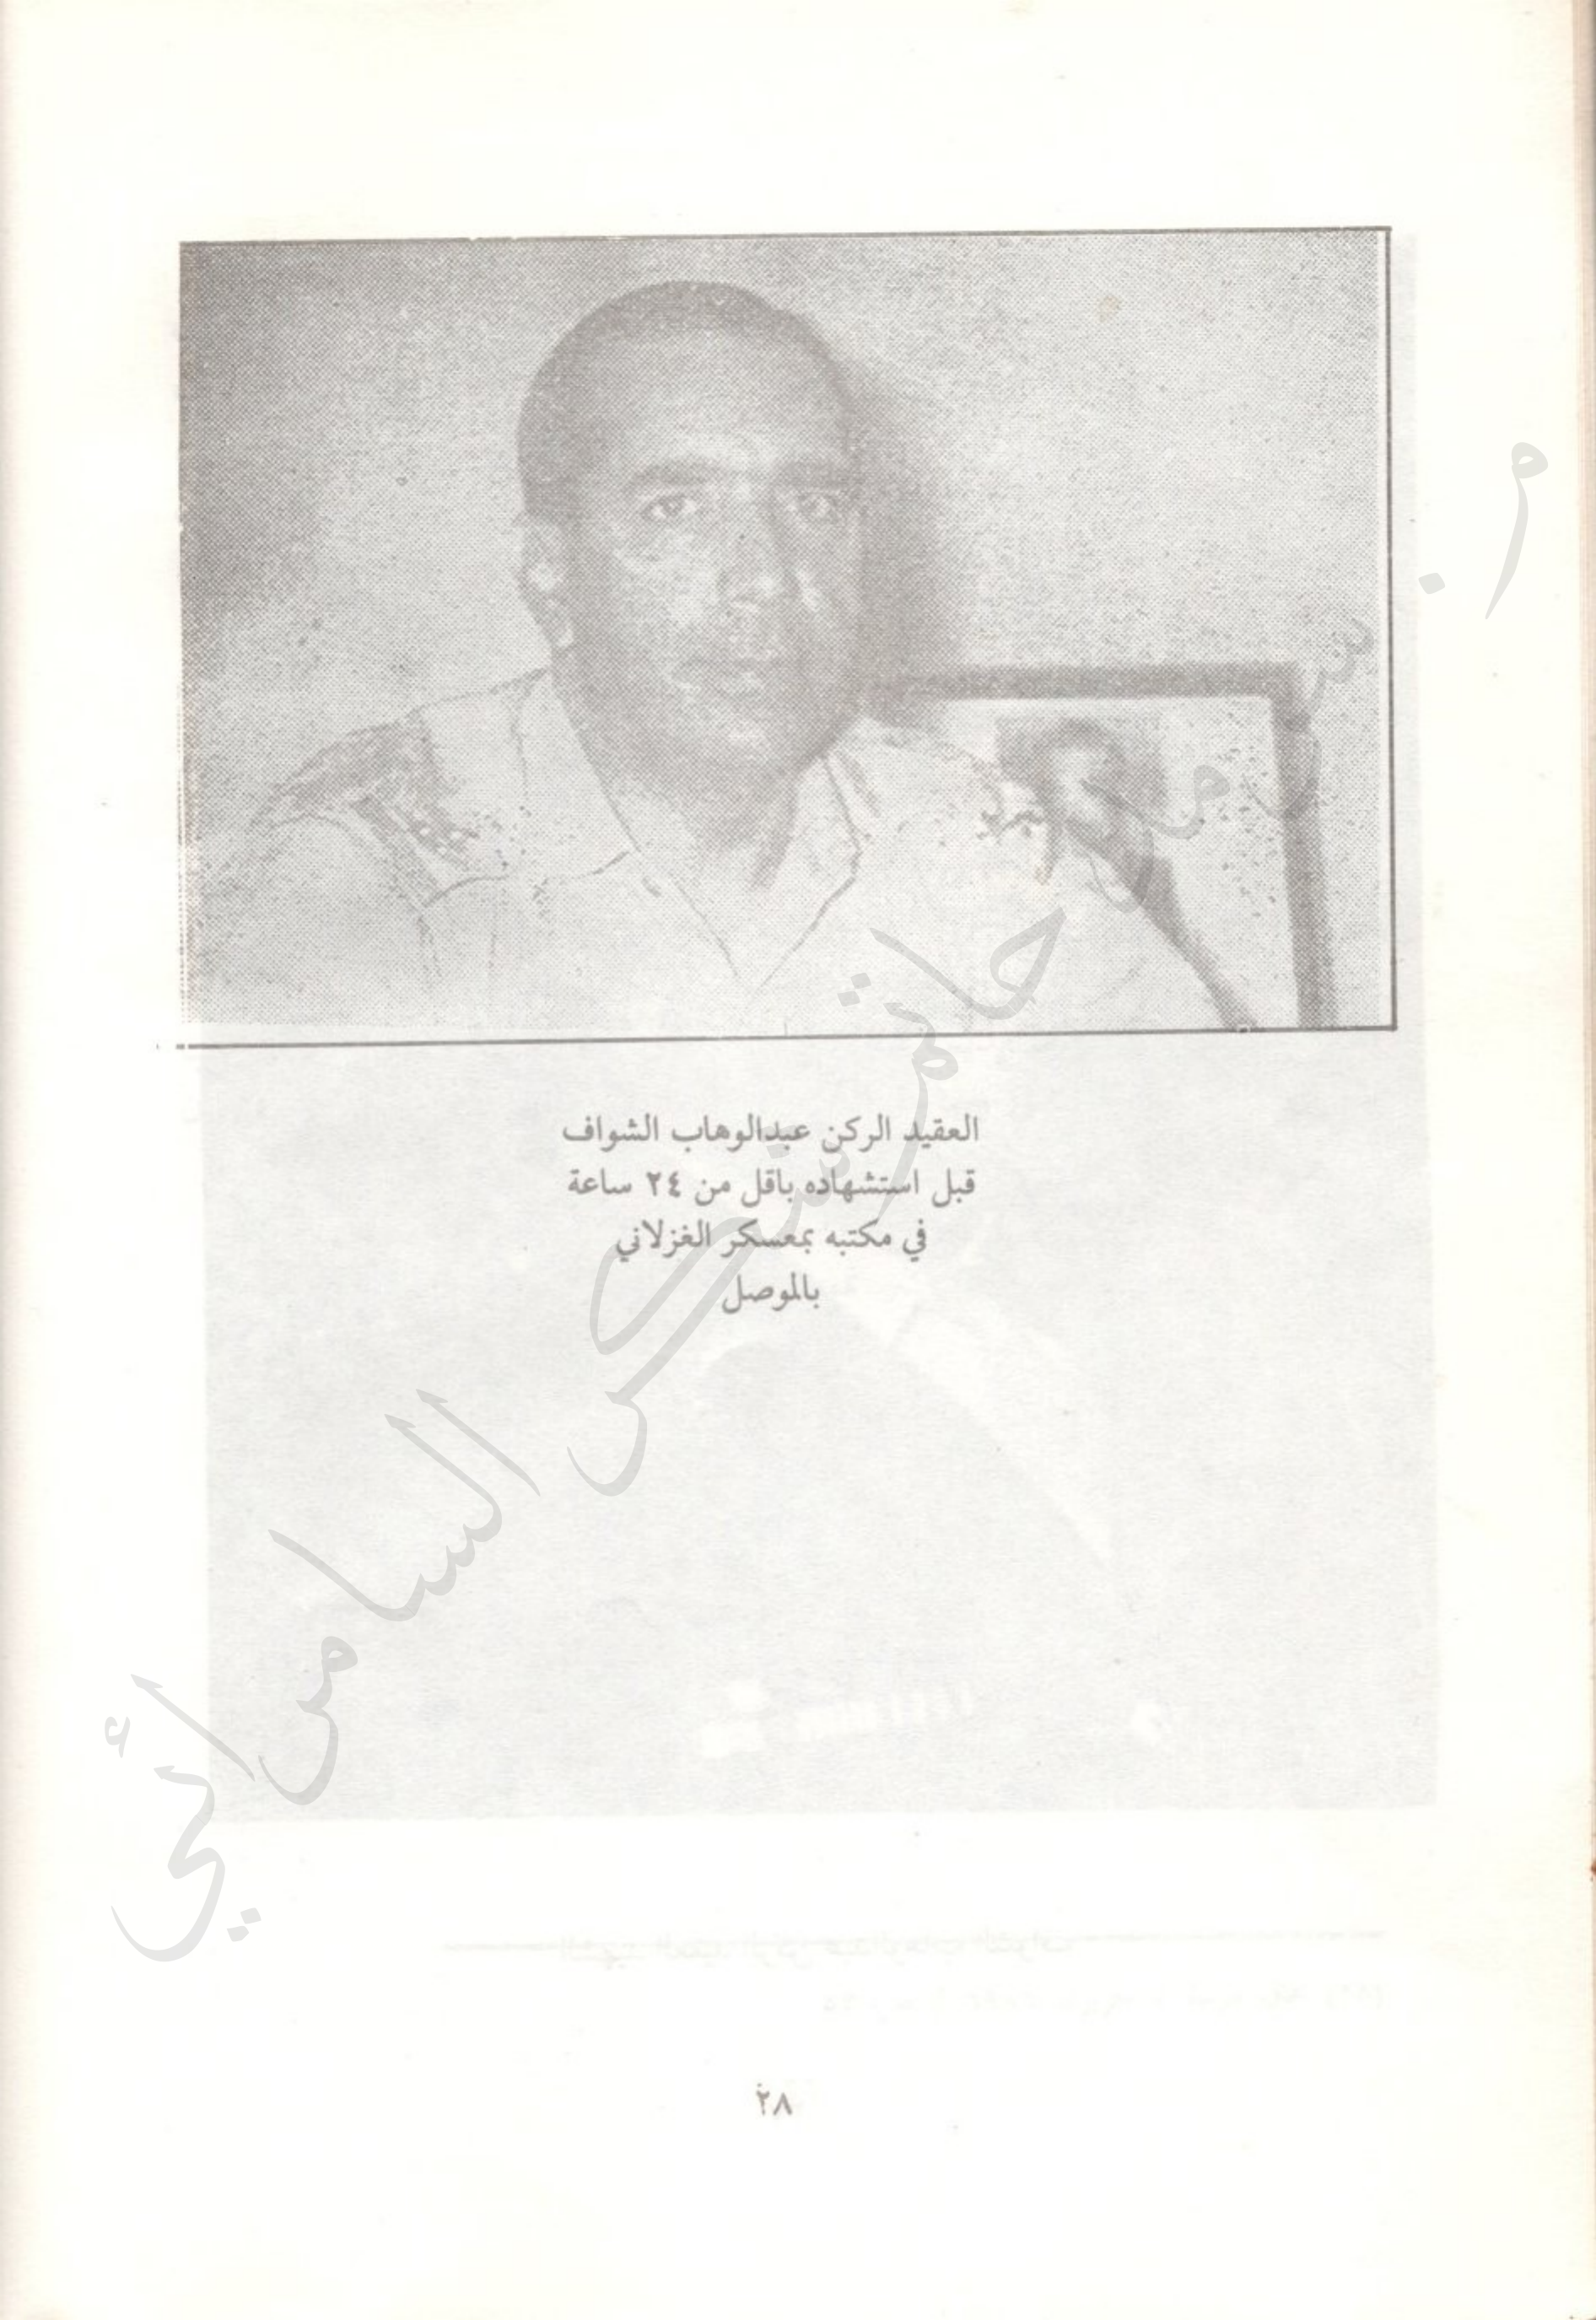 العقيد الركن عبدالوهاب الشواف
قبل استشهاده باقل من ٢٤ ساعة
في مكتبه بمعسكر الغزلاني
بالموصل
السامرائي
٢٨